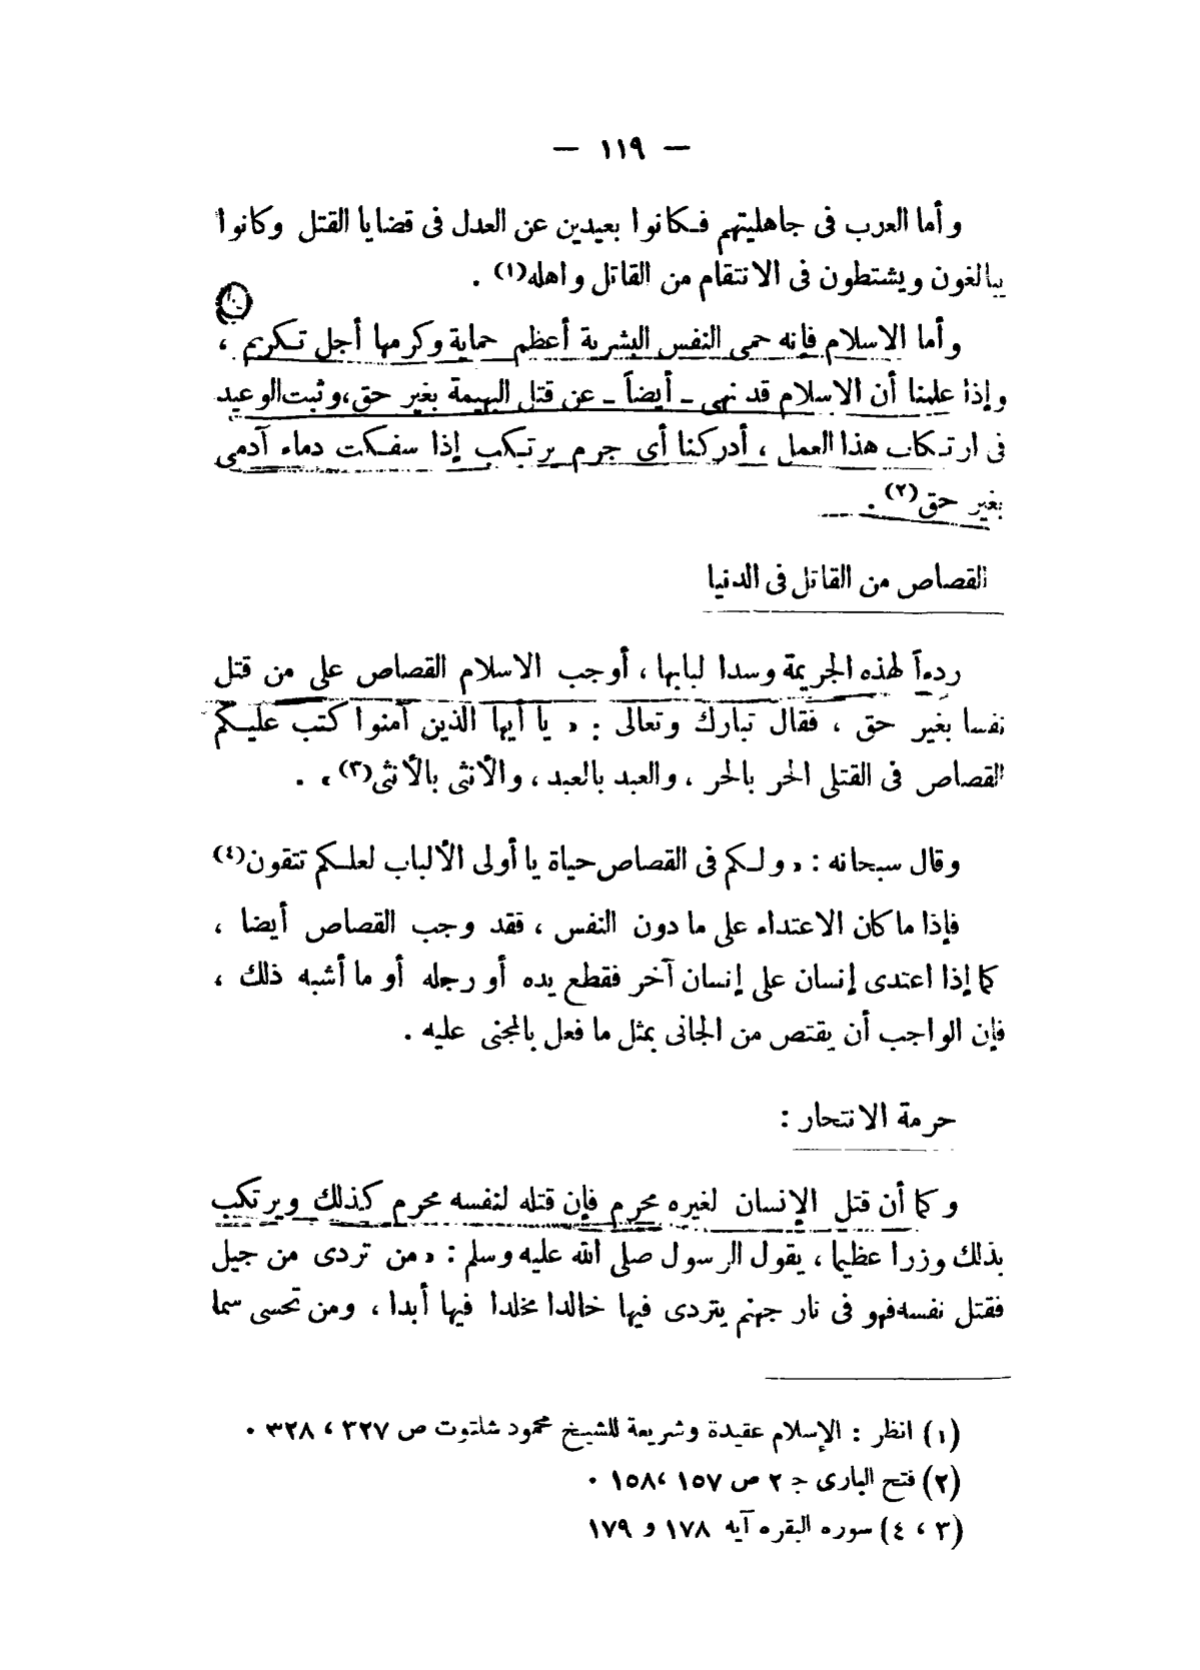 — ١١٩ —
وأما العرب فى جاهليتهم فكانوا بعيدين عن العدل فى قضايا القتل وكانوا
يبالغون ويشتطون فى الانتقام من القاتل واهله(١) .
وأما الاسلام فإنه حمى النفس البشرية أعظم حماية وكرمها أجل تكريم ،
وإذا علمنا أن الاسلام قد نهى ــ أيضاً ــ عن قتل البهيمة بغير حق، وثبت الوعيد
فى ارتكاب هذا العمل ، أدركنا أى جرم يرتكب إذا سفكت دماء آدمى
بغير حق(٢) .
القصاص من القاتل فى الدنيا
ردءاً لهذه الجريمة وسدا لبابها ، أوجب الاسلام القصاص على من قتل
نفسا بغير حق ، فقال تبارك وتعالى : « يا أيها الذين آمنوا كتب عليكم
القصاص فى القتلى الحر بالحر ، والعبد بالعبد ، والأنثى بالأنثى(٣) » .
وقال سبحانه : « ولكم فى القصاص حياة يا أولى الألباب لعلكم تتقون(٤)
فإذا ما كان الاعتداء على ما دون النفس ، فقد وجب القصاص أيضا ،
كما إذا اعتدى إنسان على إنسان آخر فقطع يده أو رجله أو ما أشبه ذلك ،
فإن الواجب أن يقتص من الجانى بمثل ما فعل بالمجنى عليه .
حرمة الانتحار :
وكما أن قتل الإنسان لغيره محرم فإن قتله لنفسه محرم كذلك ويرتكب
بذلك وزرا عظيما ، يقول الرسول صلى الله عليه وسلم : « من تردى من جبل
فقتل نفسه فهو فى نار جهنم يتردى فيها خالدا مخلدا فيها أبدا ، ومن تحسى سما
(١) انظر : الإسلام عقيدة وشريعة للشيخ محمود شلتوت ص ٣٢٧ ، ٣٢٨ .
(٢) فتح البارى ج ٢ ص ١٥٧ ،١٥٨ .
(٣ ، ٤) سوره البقره آيه ١٧٨ و ١٧٩